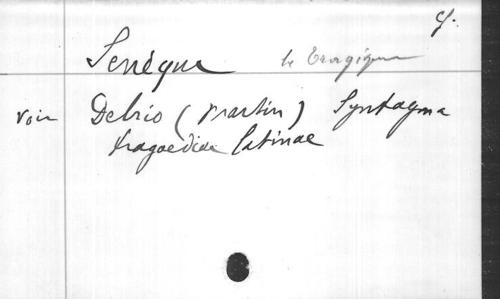 Senèque le Tragique
voir Delrio (Martin) Syntagma
tragoediae latinae